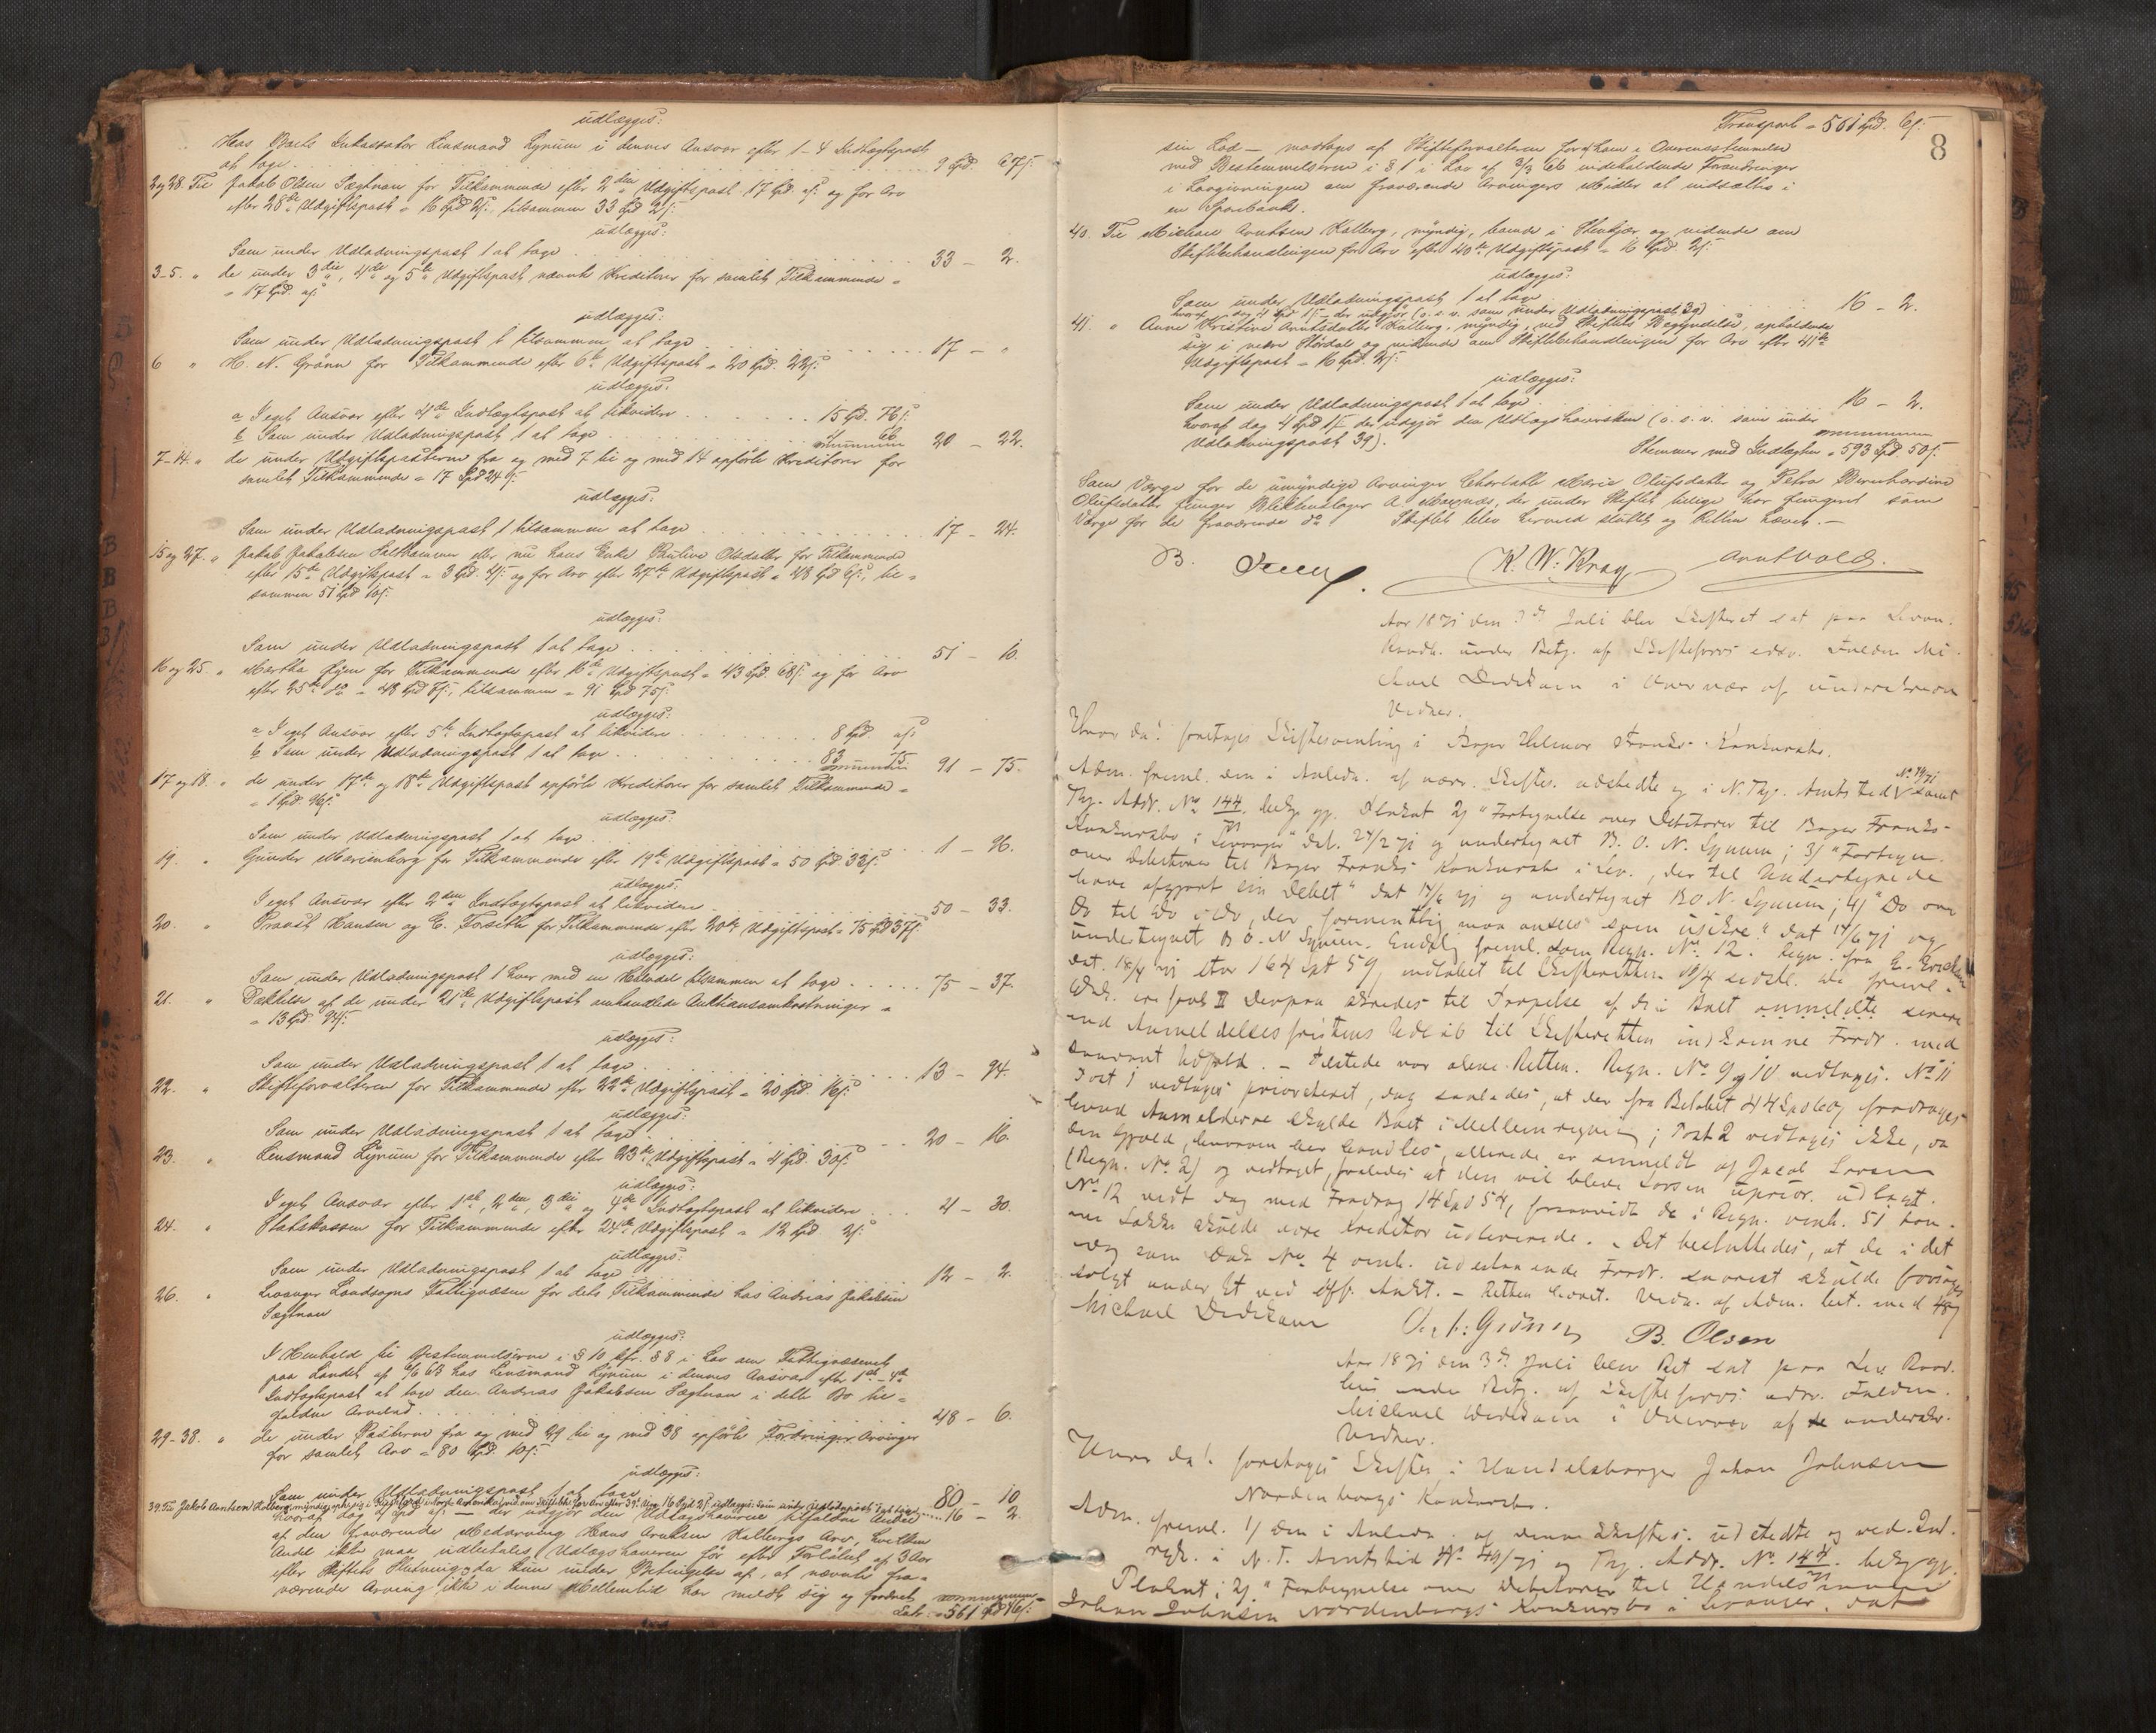 udlægges:
Hos Boets Inkassator Lensmand Lynum i dennes Ansvar efter 1-4 Indtægtspost
at tage . . . 9 Spd. 67 s:
2 og 28. Til Jakob Olsen Sægtnan for Tilkommende efter 2den Udgiftspost 17 Spd. " s: og for Arv
efter 28de Udgiftspost = 16 Spd 2 s:, tilsammen 33 Spd 2 s:
udlægges:
Som under Udlodningspost 1 at tage . . . 33 - 2.
3-5. " de under 3die, 4de og 5te Udgiftspost nævnte Kreditorer for samlet Tilkommende =
= 17 Spd. " s:
udlægges:
Som under Udlodningspost 1 tilsammen at tage . . . 17 - "
6 " H. N. Grønn for Tilkommende efter 6te Udgiftspost = 20 Spd. 22 s:
udlægges:
a, I eget Ansvar efter 4de Indtægtspost at likvidere . . . 15 Spd. 76 s:
b, Som under Udlodningspost 1 at tage . . . 4 66 20 - 22.
7-14. " de under Udgiftsposterne fra og med 7 til og med 14 opførte Kreditorer for
samlet Tilkommende = 17 Spd 24 s:
udlægges:
Som under Udlodningspost 1 tilsammen at tage . . . 17 - 24.
15 og 27. " Jakob Jakobsen Salthammer eller nu hans Enke Pauline Olsdatter for Tilkommende
efter 15te Udgiftspost = 3 Spd. 4 s: og for Arv efter 27de Udgiftspost = 48 Spd 6 s:, til-
sammen 51 Spd 10 s:
udlægges:
Som under Udlodningspost 1 at tage . . . 51 - 10.
16 og 25. " Martha Øyen for Tilkommende efter 16de Udgiftspost = 43 Spd. 68 s: og for Arv
efter 25de do = 48 Spd 7 s:, tilsammen = 91 Spd 75 s:
udlægges:
a, I eget Ansvar efter 5te Indtægtspost at likvidere . . . 8 Spd " s:
b, Som under Udlodningspost 1 at tage . . . 83 75 91 - 75.
17 og 18. " de under 17de og 18de Udgiftspost opførte Kreditorer for samlet Tilkommende =
= 1 Spd. 96 s:
udlægges:
Som under Udlodningspost 1 at tage . . . 1 - 96.
19. " Gunder Marienborg for Tilkommende efter 19de Udgiftspost = 50 Spd 33 s:
udlægges:
I eget Ansvar efter 2den Indtægtspost at likvidere . . . 50 - 33.
20. " Provst Hansen og E. Forseth for Tilkommende efter 20de Udgiftspost = 75 Spd 37 s:
udlægges:
Som under Udlodningspost 1 hver med en Halvdel tilsammen at tage . . . 75 - 37.
21. " Dækkelse af de under 21de Udgiftspost omhandlede Auktionsomkostninger =
= 13 Spd. 94 s:
udlægges:
Som under Udlodningspost 1 at tage . . . 13 - 94.
22. " Skifteforvalteren for Tilkommende efter 22de Udgiftspost = 20 Spd. 16 s:
udlægges:
Som under Udlodningspost 1 at tage . . . 20 - 16.
23. " Lensmand Lynum for Tilkommende efter 23de Udgiftspost = 4 Spd. 30 s:
udlægges:
I eget Ansvar efter 1ste, 2den, 3die og 4de Indtægtspost at likvidere . . . 4 - 30.
24. " Statskassen for Tilkommende efter 24de Udgiftspost = 12 Spd 2 s:
udlægges:
Som under Udlodningspost 1 at tage . . . 12 - 2.
26. " Levanger Landsogns Fattigvæsen for dets Tilkommende hos Andreas Jakobsen
Sægtnan
udlægges:
I Henhold til Bestemmelserne i § 10 kfr. § 8 i Lov om Fattigvæsenet
paa Landet af 6/6 63 hos Lensmand Lynum i dennes Ansvar efter 1ste - 4de
Indtægtspost at tage den Andreas Jakobsen Sægtnan i dette Bo til-
faldne Arvelod . . . 48 - 6.
29-38. " de under Posterne fra og med 29 til og med 38 opførte Arvinger
for samlet Arv = 80 Spd. 10 s:
udlægges:
Som under Udlodningspost 1 at tage . . . 80 - 10
39. Til Jakob Arntsen Kolberg, myndig, for Arv efter 39. Udg. 16 Spd 2 s: udlægges: Som under Udlodnpost 1 at tage . . . 16 - 2
hvoraf dog 4 Spd 1 s: - der udgjør den Udlægshaverne tilfaldne Andel
af den fraværende Medarving Hans Arntsen Kolbergs Arv, hvilken
Andel ikke maa udbetales Udlægshaveren før efter Forløbet af 3 Aar
efter Skiftets Slutning, og da kun under Betingelse af, at nævnte fra-
værende Arving ikke i denne Mellemtid har meldt sig og fordret
Lat. = 561 Spd 46 s:
8
Transport = 561 Spd. 46 s:
sin Lod - modtages af Skifteforvalteren for i Overensstemmelse
med Bestemmelserne i § 1 i Lov af 3/3 66 indeholdende Forandringer
i Lovgivningen om fraværende Arvingers Midler at indsættes i
en Sparebank.
40. Til Michael Arntsen Kolberg, myndig, boende i Stenkjær og vidende om
Skiftebehandlingen for Arv efter 40de Udgiftspost = 16 Spd. 2 s:
udlægges:
Som under Udlodningspost 1 at tage . . . 16 - 2.
hvoraf dog 4 Spd 1 s: - der udgjør (o. s. v. som under Udlodningspost 39)
41. " Anne Kristine Arntsdatter Kolberg, myndig, ved Skiftets Begyndelse, opholdende
sig i nedre Stördal og vidende om Skiftebehandlingen for Arv efter 41de
Udgiftspost = 16 Spd. 2 s:
udlægges:
Som under Udlodningspost 1 at tage . . . 16 - 2.
hvoraf dog 4 Spd 1 s: - der udgjør den Udlægshaversken (o. s. v. som under
Udlodningspost 39).
Stemmer med Indtægten = 593 Spd. 50 s:
Som Værge for de umyndige Arvinger Charlotte Marie Olufsdatter og Petra Bernhardine
Olufsdatter fungerer Blikkenslager A. Moxnæs, der under Skiftet tillige har fungeret som
Værge for de fraværende do Skiftet blev hermed sluttet og Retten hævet. -
B. K. W. Krag Arnt Vold.
Aar 1871 den 3d Juli blev Skifteret sat paa Levan-
Raadh. under Betj. af Skifteforvs edsv. Fuldm. Mi-
chael Dedekam i Overvær af underskrevne
Vidner.
Hvor da: foretages Skiftesamling i Bager Hilmar Franks Konkursbo.
Adm. freml. den i Anledn. af nærv. Skiftes. udstedte og i N. Thj. Amtstid No 49/71 samt
Thj. Addr. No 144/71 bekjgj. Plakat 2) "Fortegnelse over Debitorer til Bager Franks
Konkursbo i Levanger" dat. 27/2 71 og undertegnet B. O. N. Lynum; 3) "Fortegn.
over Debitorer til Bager Franks Konkursbo i Lev., der til Undertegnede
have opgjort sin Debet" dat 17/6 71 og undertegnet B O N. Lynum; 4) "Do over
Do til Do i Do, der formentlig maa ansees som usikre" dat 17/6 71 og
undertegnet B. O. N Lynum. Endelig freml. som Regn. No 12. Regn. fra E.
dat. 18/4 71 stor 164 Spd 59, indløbet til Skifteretten 18/4 sidstl. De freml.
Dok. Derpaa skredes til Prøvelse af de i Boet anmeldte senere
end Anmeldelsesfristens Udløb til Skifteretten indkomne Fordr. med
saadant Udfald. - Tilstede var alene Retten. Regn. No 9 og 10 vedtoges. No 11
Post 1 vedtoges prioriteret, dog saaledes, at der fra Beløbet 44 Spd fradrages
hvad Anmelderne skylde Boet i Mellemregning; Post 2 vedtoges ikke, da
den Gjæld, hvorom her handles, allerede er anmeldt af Jacob Larsen
(Regn. No 2) og vedtaget, saaledes at den vil blive Larsen uprior. udlagt.
No 12 vedt dog med Fradrag 14 Spd 54, forsaavidt de i Regn. omh. 51 tom-
me Sække skulde være Kreditor udleverede. - Det besluttedes, at de i det
som Dok No 4 omh. udestaaende Fordr. snarest skulde
solgt under Et ved off. Aukt. - Retten hævet. Vidn. af Adm. bet. med 48 s
Michael Dedekam B. Olsen
Aar 1871 den 3d Juli blev Ret sat paa Lev. Raad-
hus under Betj. af Skifteforvs edsv. Fuldm.
Michael Dedekam i Overvær af de underskr.
Vidner.
Hvor da: foretages Skiftes. i Handelsborger Johan Johnsen
Nordenborgs Konkursbo.
Adm. freml. 1) den i Anledn. af denne Skiftes. udstedte og ved Ind-
ryk. i N. T. Amtstid No 49/71 og Thj. Addr. No 144/71 bekjgj.
Plakat; 2) "Fortegnelse over Debitorer til Handelsmann
Johan Johnsen Nordenborgs Konkursbo i Levanger, dat